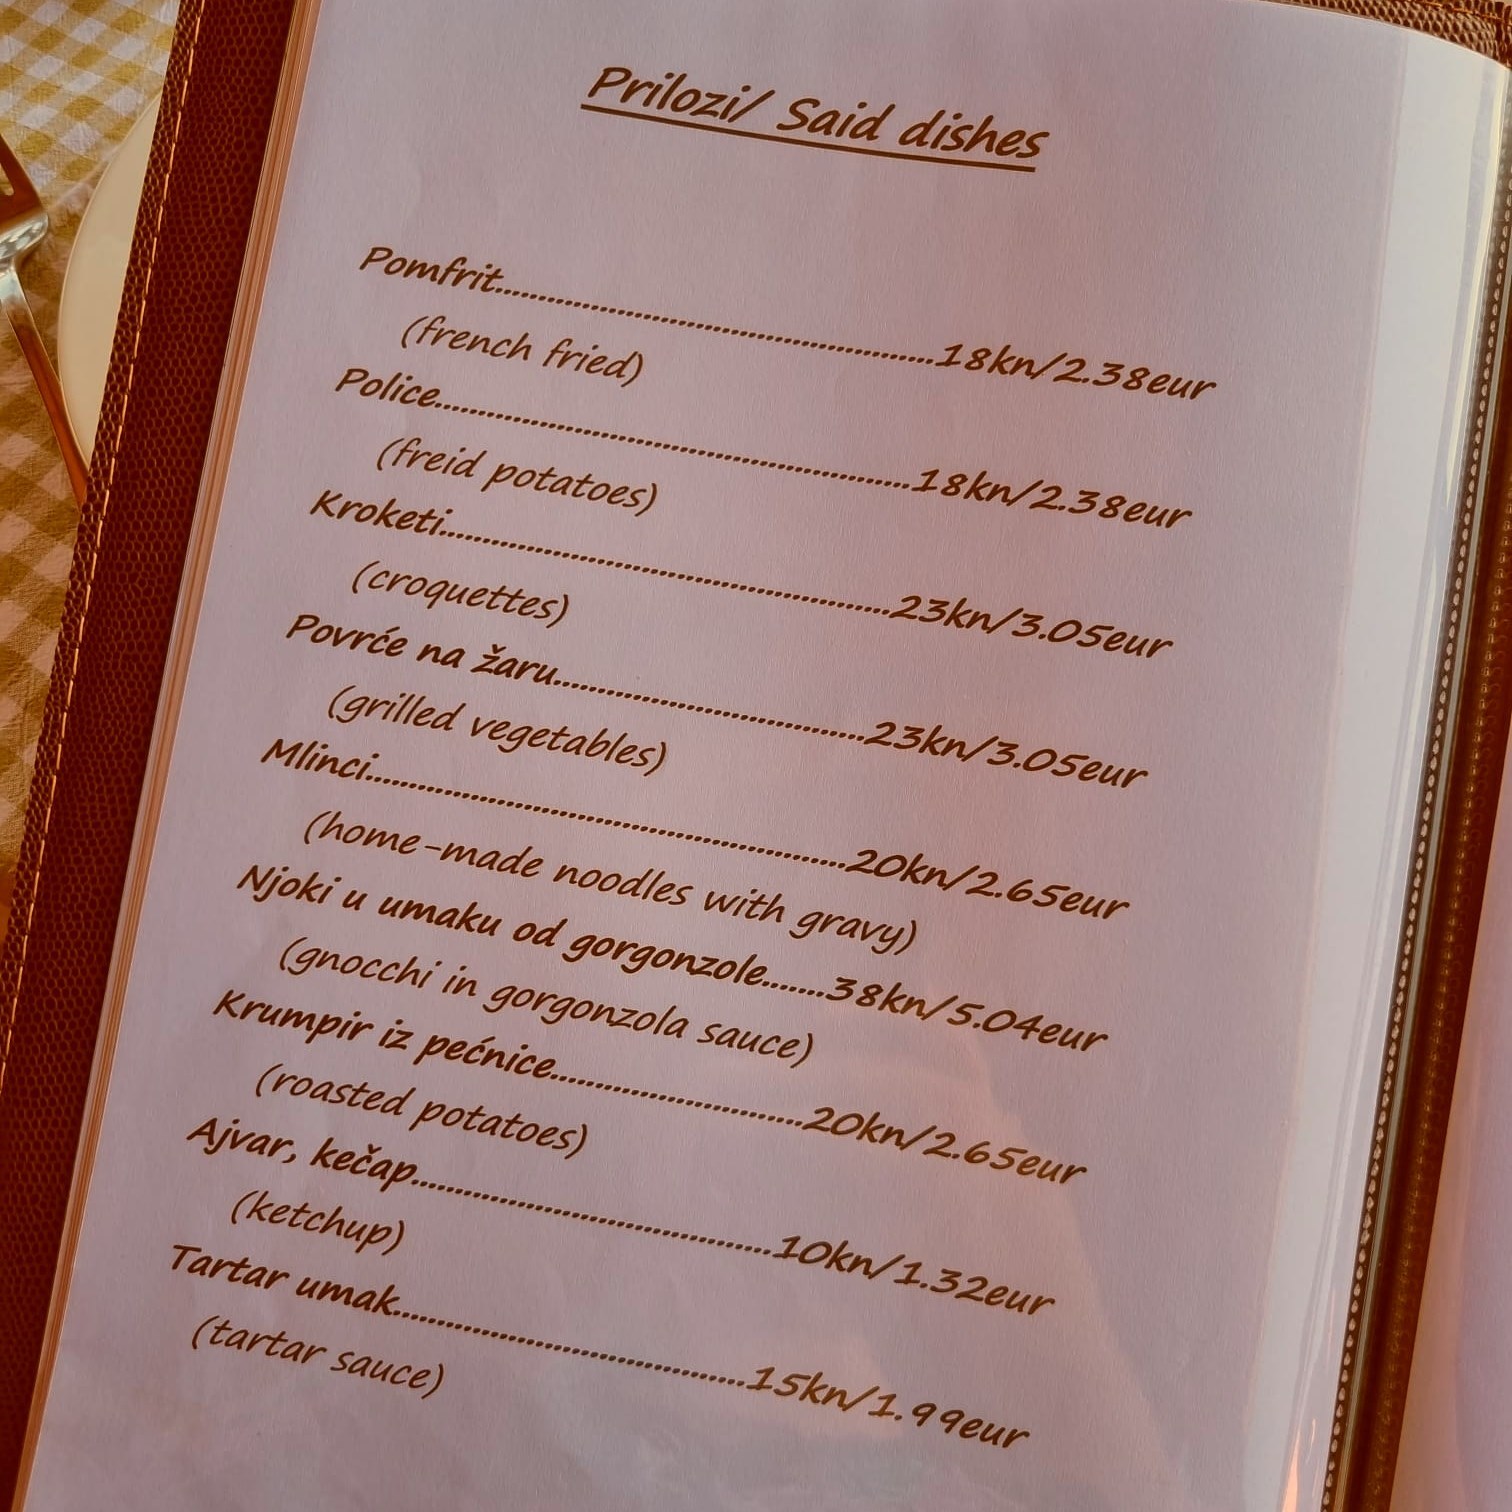 Prilozi/ Said dishes
Pomfrit......................................................18kn/2.38eur
(french fried)
Police..........................................................18kn/2.38eur
(freid potatoes)
Kroketi......................................................23kn/3.05eur
(croquettes)
Povrće na žaru.....................................23kn/3.05eur
(grilled vegetables)
Mlinci.........................................................20kn/2.65eur
(home-made noodles with gravy)
Njoki u umaku od gorgonzole.......38kn/5.04eur
(gnocchi in gorgonzola sauce)
Krumpir iz pećnice..............................20kn/2.65eur
(roasted potatoes)
Ajvar, kečap...........................................10kn/1.32eur
(ketchup)
Tartar umak..........................................15kn/1.99eur
(tartar sauce)